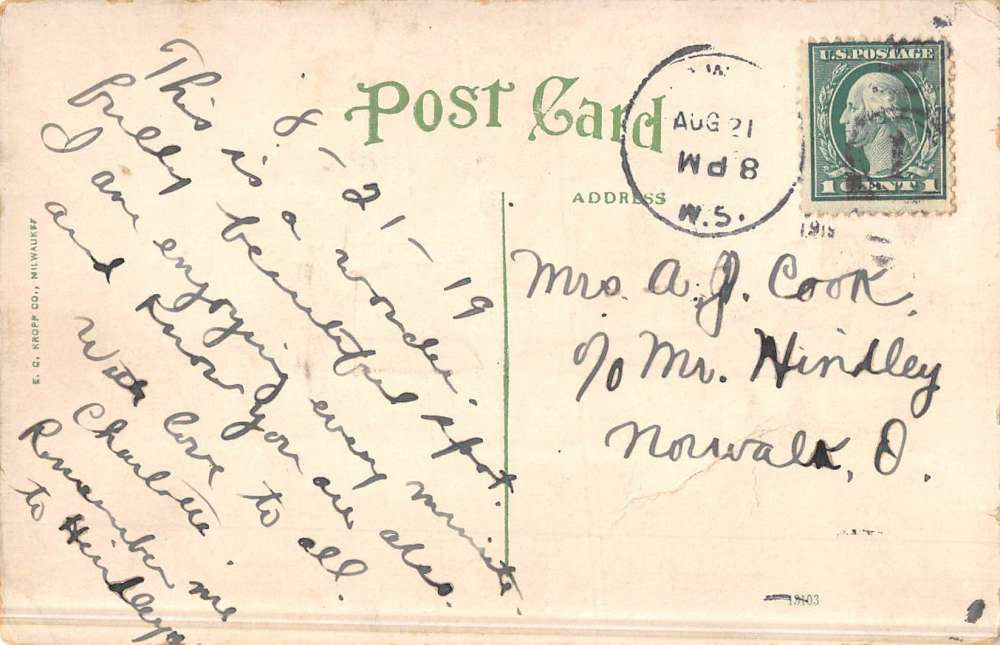 Post Card
ADDRESS
U.S. POSTAGE
1 CENT 1
AUG 21
8 PM
W.S.
191
8-21-19
This is a wonder-
fully beautiful spot.
I am enjoying every minute
and know you are also.
With love to all.
Charlotte.
Remember me
to Hindleys
Mrs. A. J. Cook,
c/o Mr. Hindley
Norwalk, O.
E. C. KROPP CO., MILWAUKEE
13103